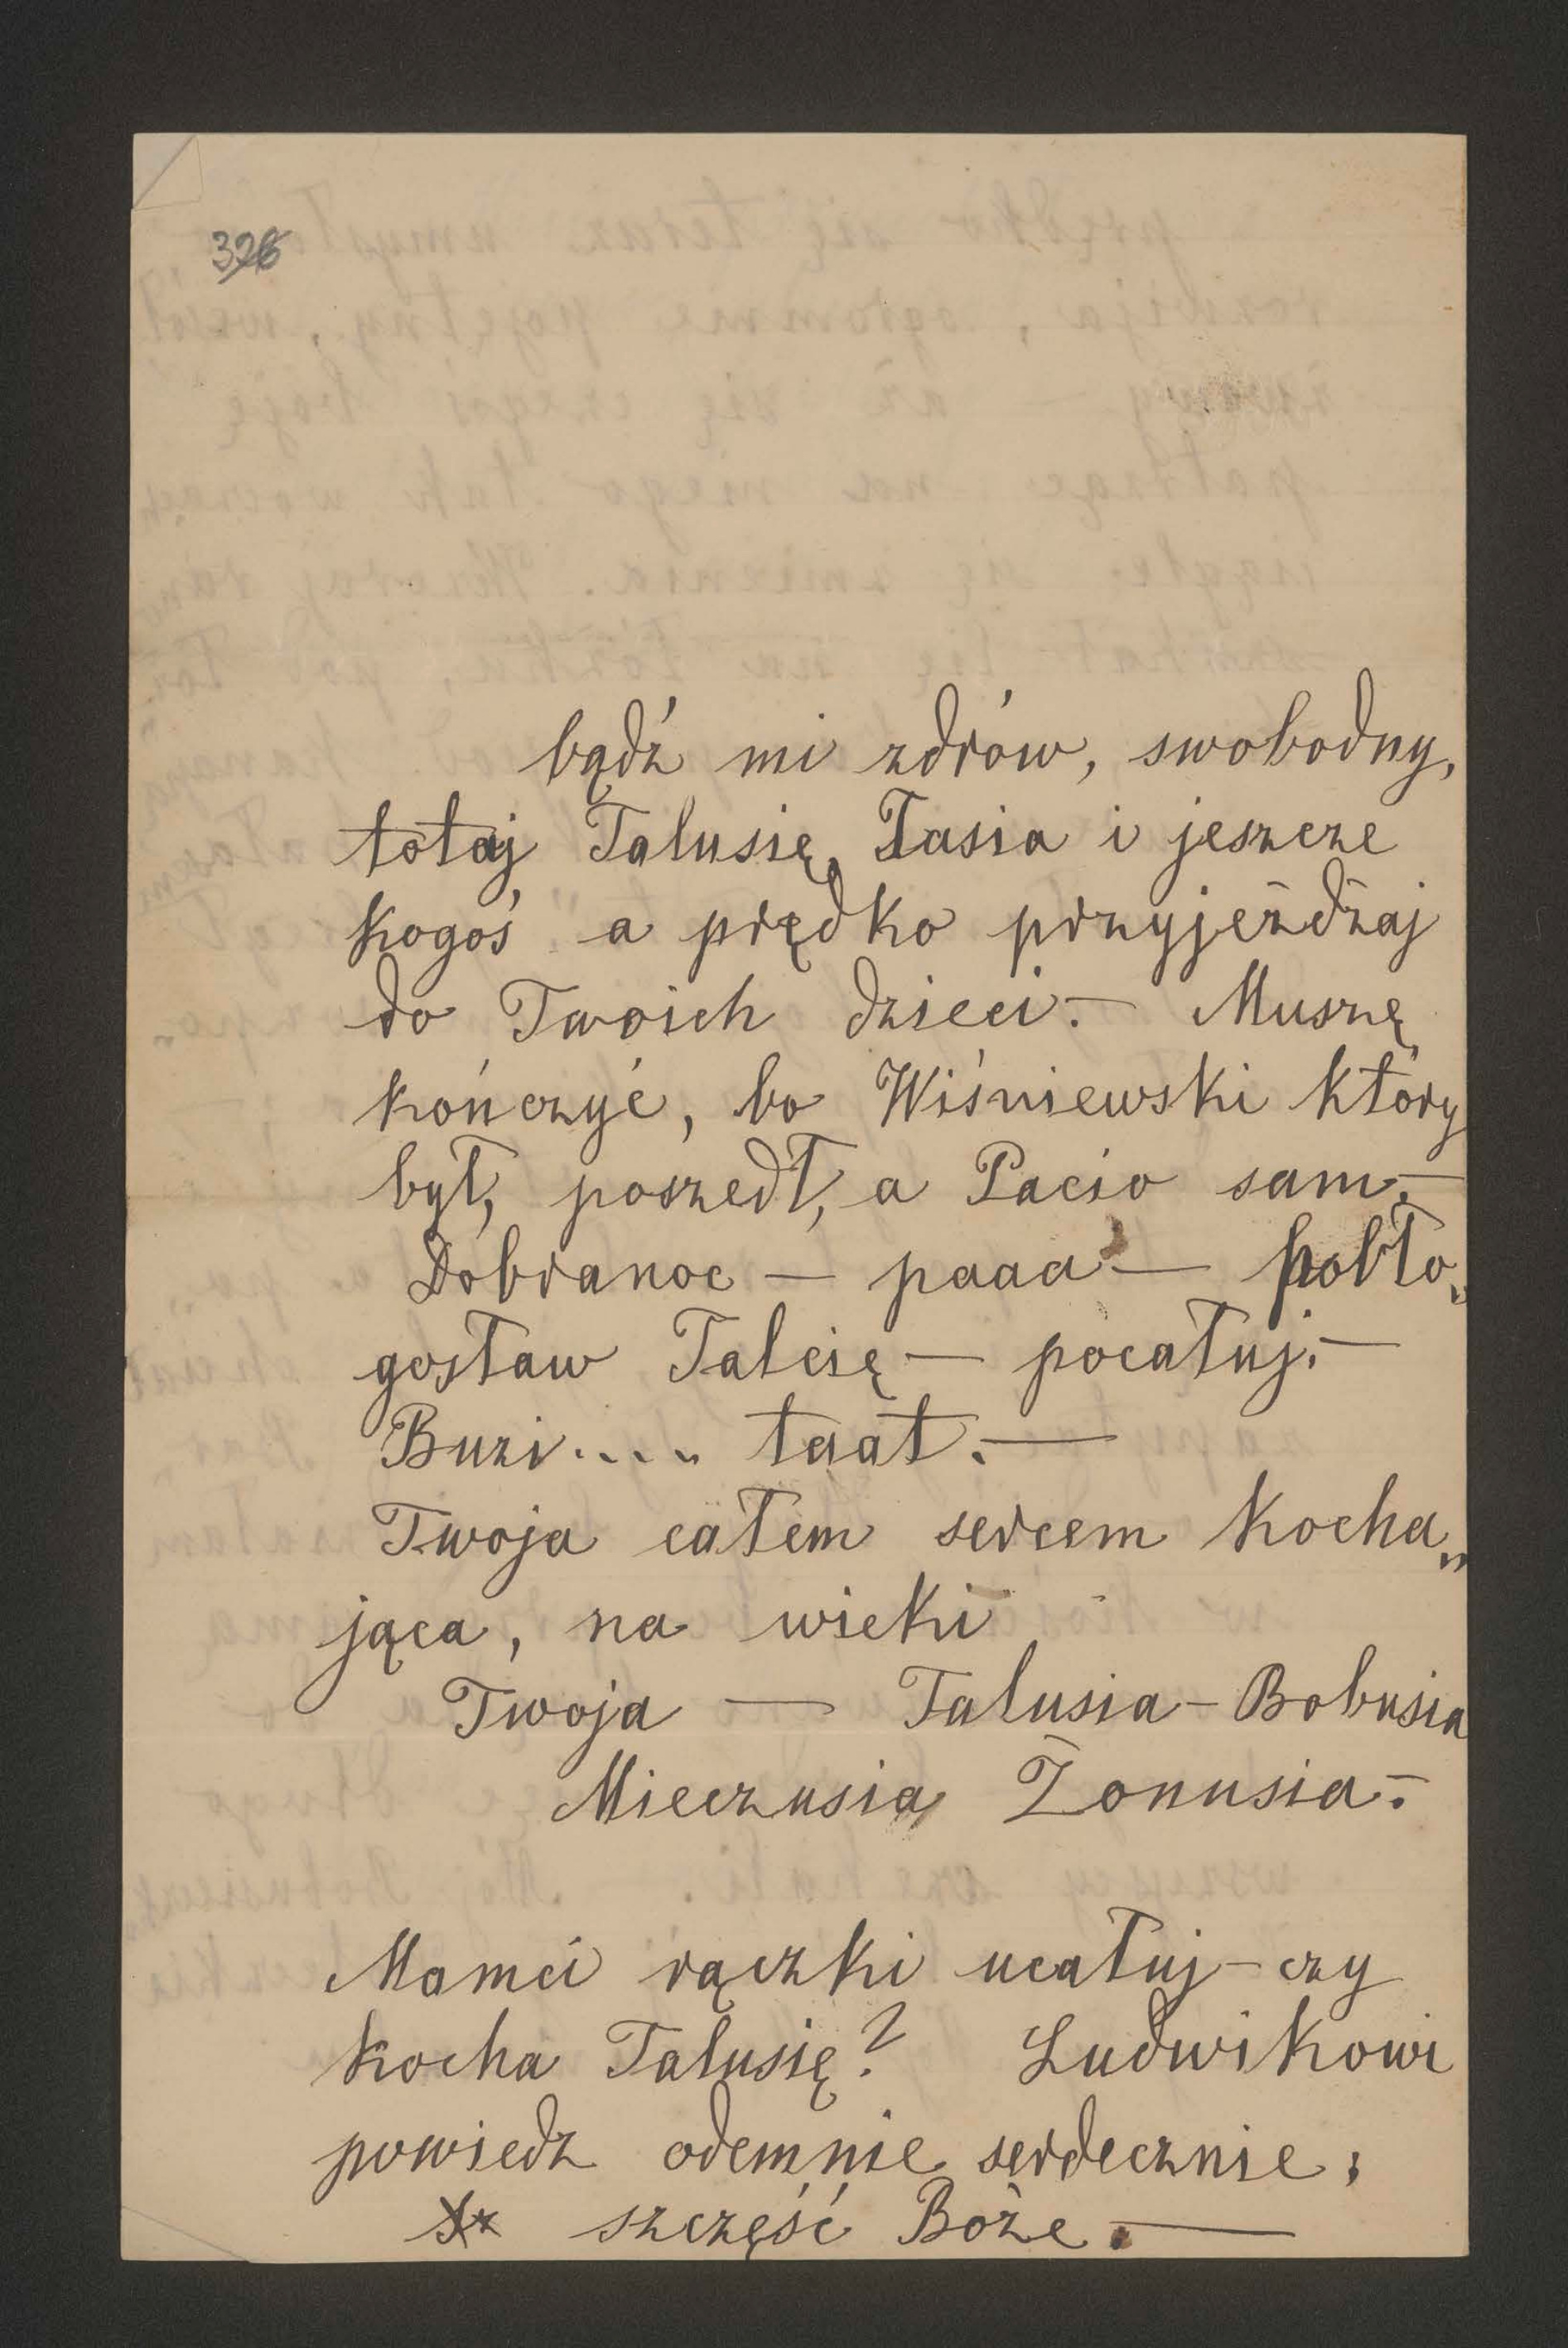 326
bądź mi zdrów, swobodny,
totaj Talusię, Tasia i jeszcze
kogoś a prędko przyjeżdżaj
do Twoich dzieci. — Muszę
kończyć, bo Wiśniewski który
był, poszedł, a Pacio sam. —
Dobranoc — paaa — pobło„
gosław Talcię — pocałuj. —
Buzi.... taat. —
Twoja całem sercem kocha„
jąca, na wieki
Twoja — Talusia - Bobusia
Mieczusia Żonusia. —
Mamci rączki ucałuj - czy
kocha Talusię? Ludwikowi
powiedz odemnie serdecznie,
szczęść Boże. —